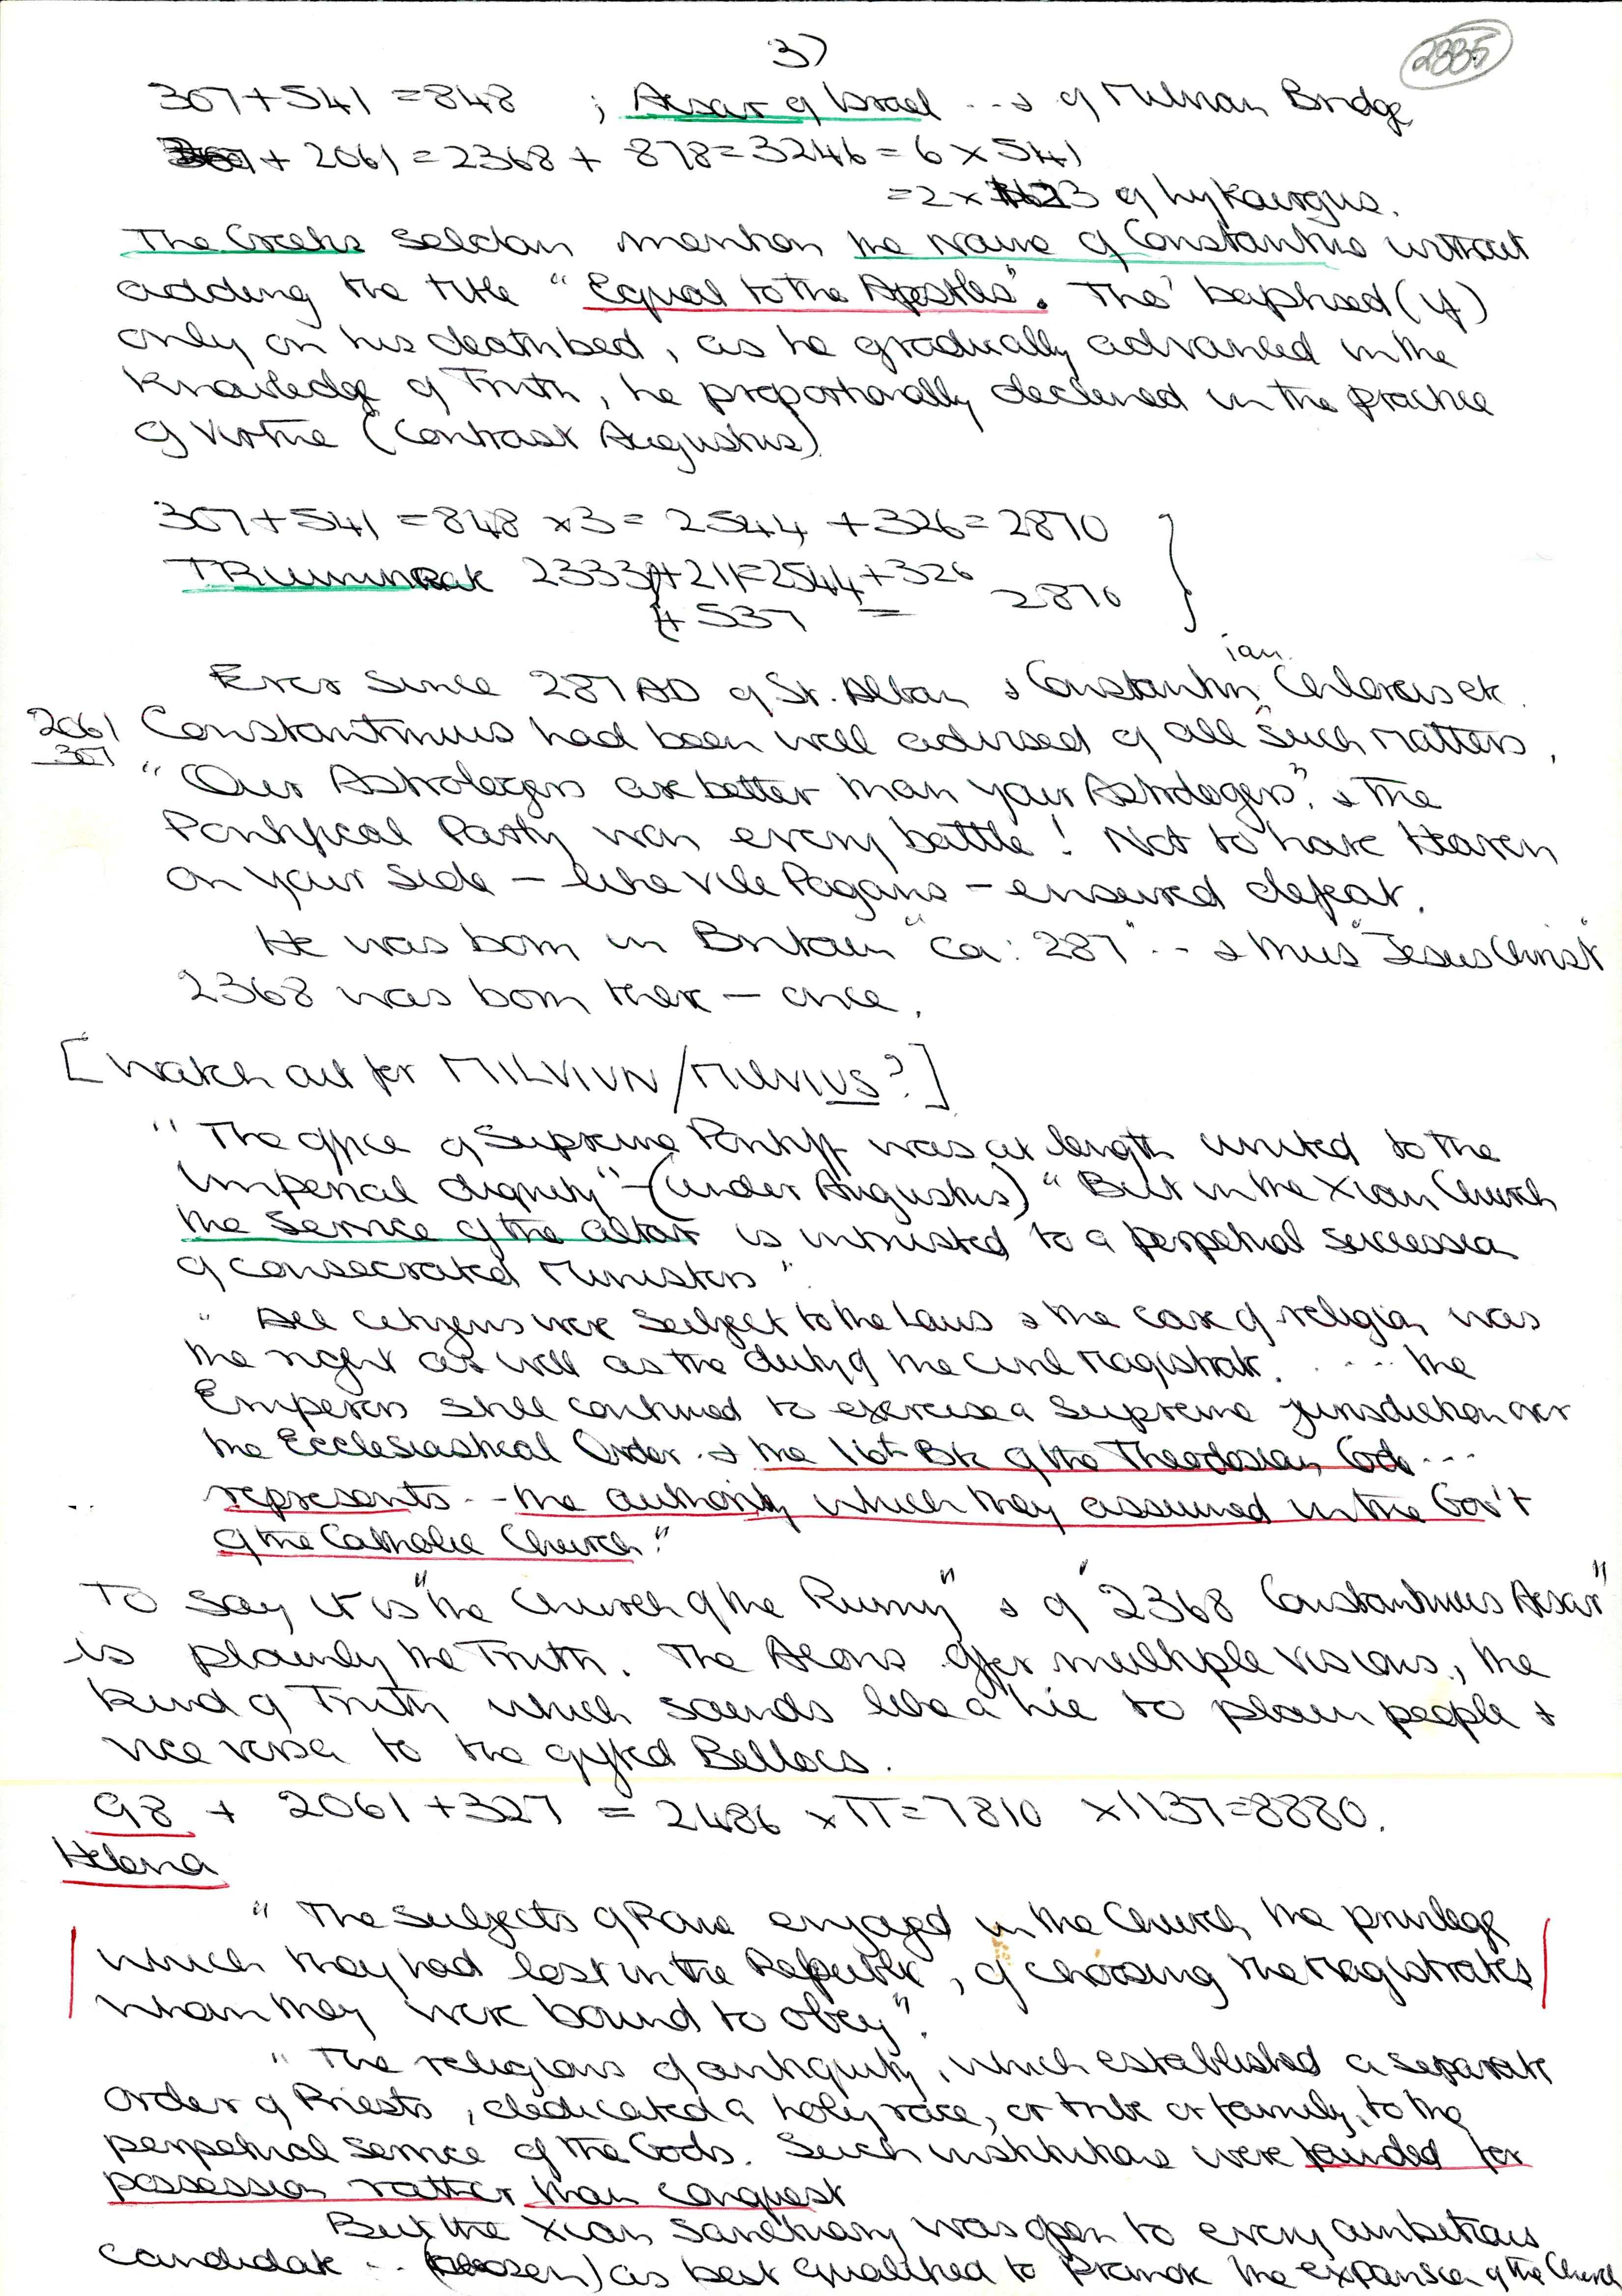 3)
2885
307 + 541 = 848 ; Aesar of Israel ... & of Milvian Bridge
307 + 2061 = 2368 + 878 = 3246 = 6 x 541
= 2 x 1623 of Lykourgus.
The Greeks seldom mention the name of Constantine without
adding the title "Equal to the Apostles". Tho' baptised (if)
only on his deathbed, as he gradually advanced in the
knowledge of Truth, he proportionally declined in the practice
of virtue (contrast Augustus)
307 + 541 = 848 x 3 = 2544 + 326 = 2870
2333 + 211 = 2544 + 326
+ 537 = 2870
Ever since 287 AD of St. Alban & Constantin
ian
etc.
2061
307
Constantinus had been well advised of all such matters.
"Our Astrologers are better than your Astrologers", & the
Pontifical Party won every battle! Not to have Heaven
on your side – like vile Pagans – ensured defeat.
He was born in Britain "ca: 287" .. & thus "Jesus Christ"
2368 was born there – once.
[Watch out for MILVIUN / MULVIUS?]
"The office of Supreme Pontiff was at length united to the
Imperial dignity" – (under Augustus) "But in the Xian Church
the service of the altar is intrusted to a perpetual succession
of consecrated Ministers".
"All citizens were subject to the Laws & the care of religion was
the right as well as the duty of the civil magistrate. .... the
Emperors still continued to exercise a supreme jurisdiction over
the Ecclesiastical Order .. & the 16th Bk of the Theodosian Code ...
represents .. the authority which they assumed in the Gov't
of the Catholic Church."
To say it is "the Church of the Rummy" & of "2368 Constantinus Aesar"
is plainly the Truth. The Aeons offer multiple visions, the
kind of Truth which sounds like a lie to plain people &
vice versa to the gifted Bellocs.
98 + 2061 + 327 = 2486 x π = 7810 x 1137 = 8880.
Helena
"The subjects of Rome enjoyed in the Church the privilege
which they had lost in the Republic, of choosing the magistrates
whom they were bound to obey".
"The religions of antiquity, which established a separate
order of Priests, dedicated a holy race, or tribe or family, to the
perpetual service of the Gods. Such institutions were founded for
possession rather than conquest
But the Xian sanctuary was open to every ambitious
candidate .. (chosen) as best qualified to promote the expansion of the Church